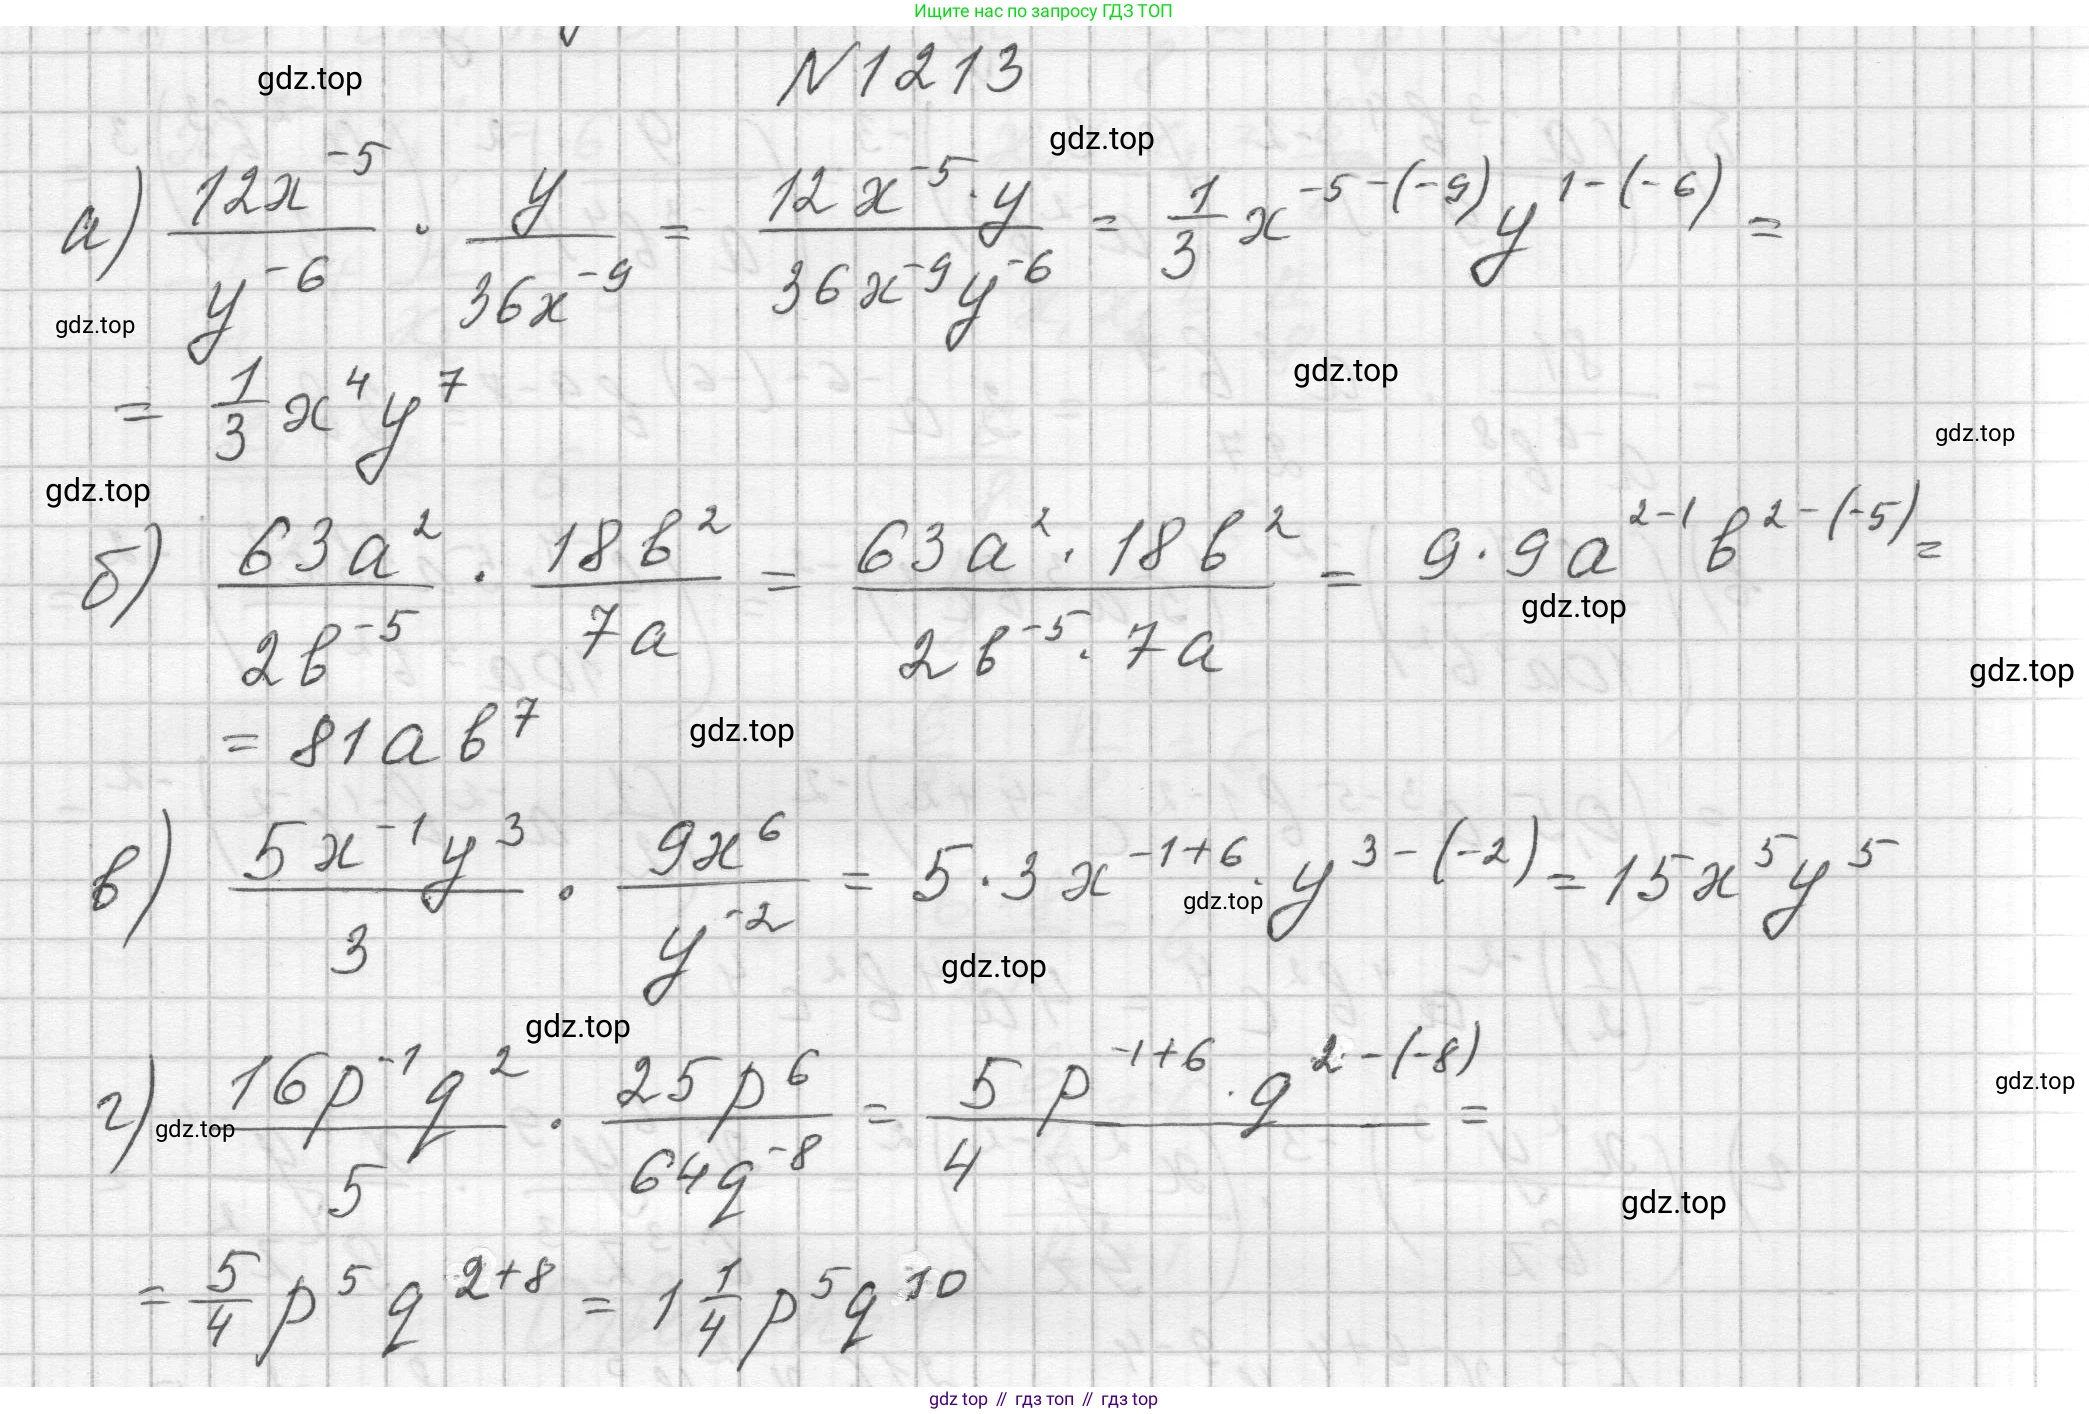 Ищите нас по запросу ГДЗ ТОП
N1213
gdz.top
gdz.top
а) 12x⁻⁵/y⁻⁶ · y/36x⁻⁹ = 12x⁻⁵·y/36x⁻⁹y⁻⁶ = 1/3 x⁻⁵⁻⁽⁻⁹⁾y¹⁻⁽⁻⁶⁾ =
gdz.top
gdz.top
= 1/3 x⁴y⁷
gdz.top
gdz.top
б) 63a²/2b⁻⁵ · 18b²/7a = 63a²·18b²/2b⁻⁵·7a = 9·9a²⁻¹b²⁻⁽⁻⁵⁾ =
gdz.top
gdz.top
= 81ab⁷
gdz.top
в) 5x⁻¹y³/3 · 9x⁶/y⁻² = 5·3x⁻¹⁺⁶·y³⁻⁽⁻²⁾ = 15x⁵y⁵
gdz.top
gdz.top
gdz.top
г) 16p⁻¹q²/5 · 25p⁶/64q⁻⁸ = 5p⁻¹⁺⁶·q²⁻⁽⁻⁸⁾/4 =
gdz.top
gdz.top
gdz.top
= 5/4 p⁵q²⁺⁸ = 1 1/4 p⁵q¹⁰
gdz top // гдз топ // гдз top